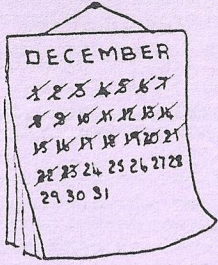 DECEMBER
1 2 3 4 5 6 7
8 9 10 11 12 13 14
15 16 17 18 19 20 21
22 23 24 25 26 27 28
29 30 31